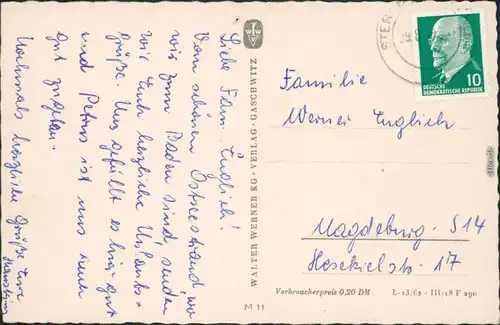 Liebe Fam. Englich!
Vom schönen Ostseestrand, wo
wir zum Baden sind, senden
wir Euch herzliche Urlaubs-
grüße. Uns gefällt es hier gut
und Petrus ist uns auch
gut zugetan.
Nochmals herzliche Grüße Eure
WALTER WERNER KG · VERLAG · G.-SCHWANITZ
M 11
DEUTSCHE
DEMOKRATISCHE REPUBLIK
10
Familie
Werner Englich
Magdeburg S 14
Hesekielstr. 17
Verbraucherpreis 0,20 DM
L-13/62 - III/18 F 290